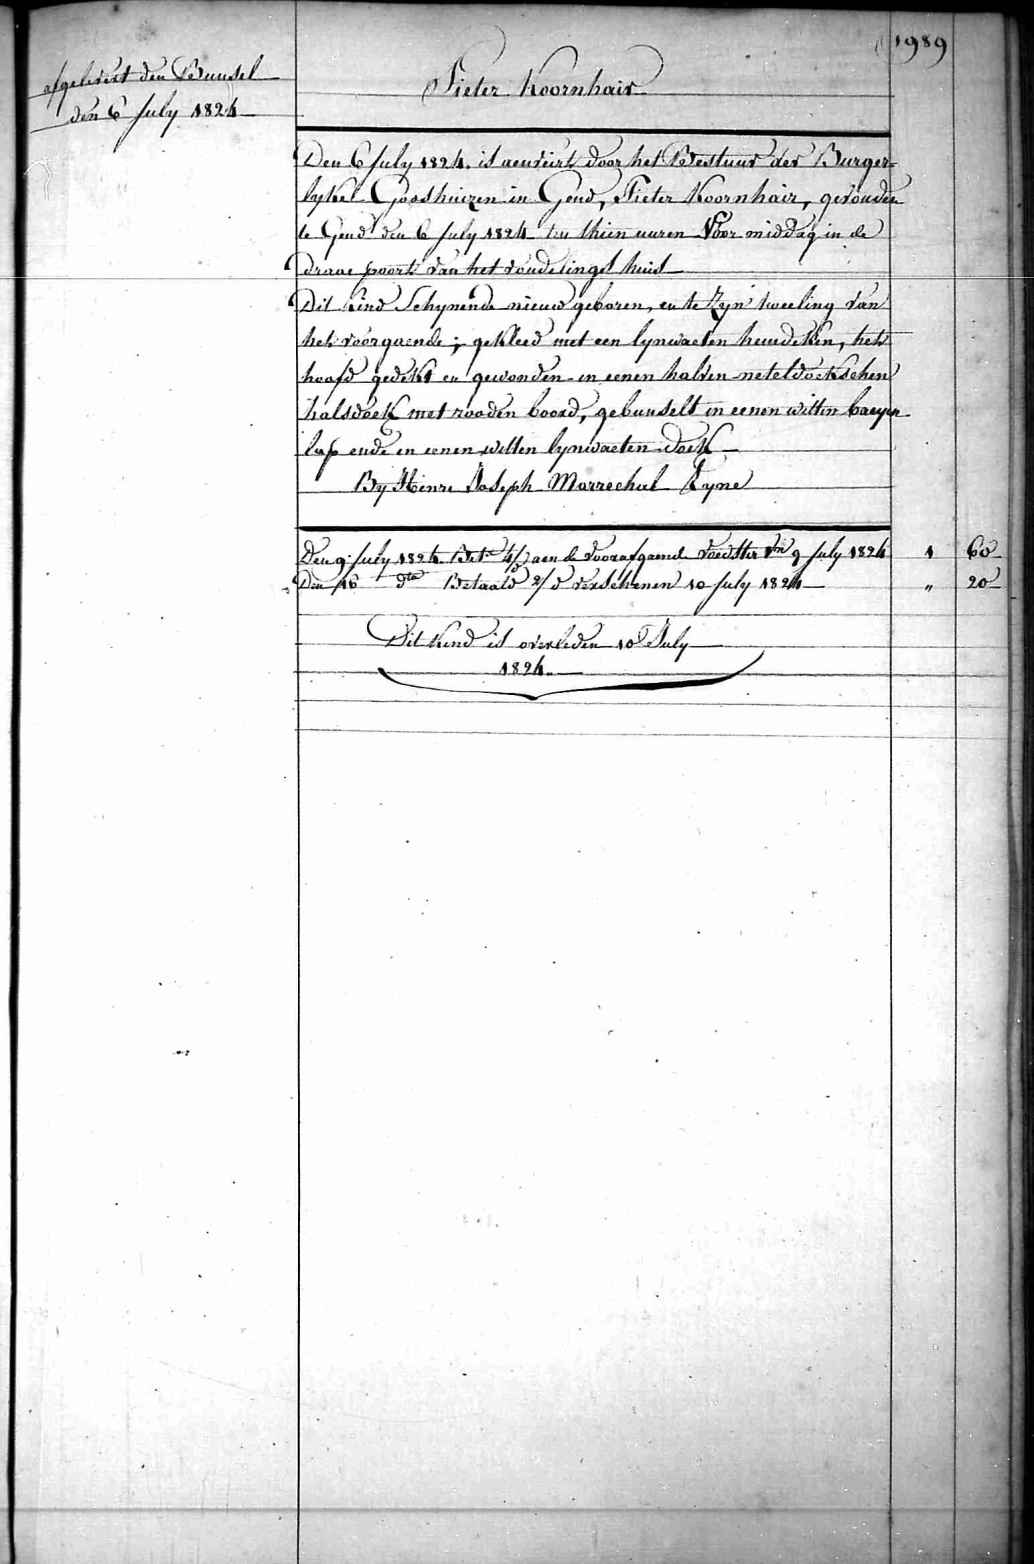 1989
afgelevert den Bunsel
den 6 July 1824
Pieter Koornhair
Den 6 July 1824. is aenveirt door het Bestuur der Burger-
lyke Godshuizen in Gend, Pieter Koornhair, gevonden
te Gend den 6 July 1824 ten thien uuren Voor middag in de
draae poorte van het vondelings huis
Dit kind Schynende nieuw geboren, en te Zyn tweeling van
het voorgaende; gekleed met een lynwaeten hemdeken, het
hoofd gedekt en gewonden in eenen halven neteldoekschen
halsdoek met rooden boord, gebunselt in eenen witten baeyen
lap ende in eenen witten lynwaeten doek
By Henri Joseph Marrechal Eyne
Den 9 July 1824. Bet. aen de voorafgaende voedster 9 July 1824 1 60
Den 16 dto Betaald verschenen 10 July 1824 „ 20
Dit kind is overleden 10 July
1824.